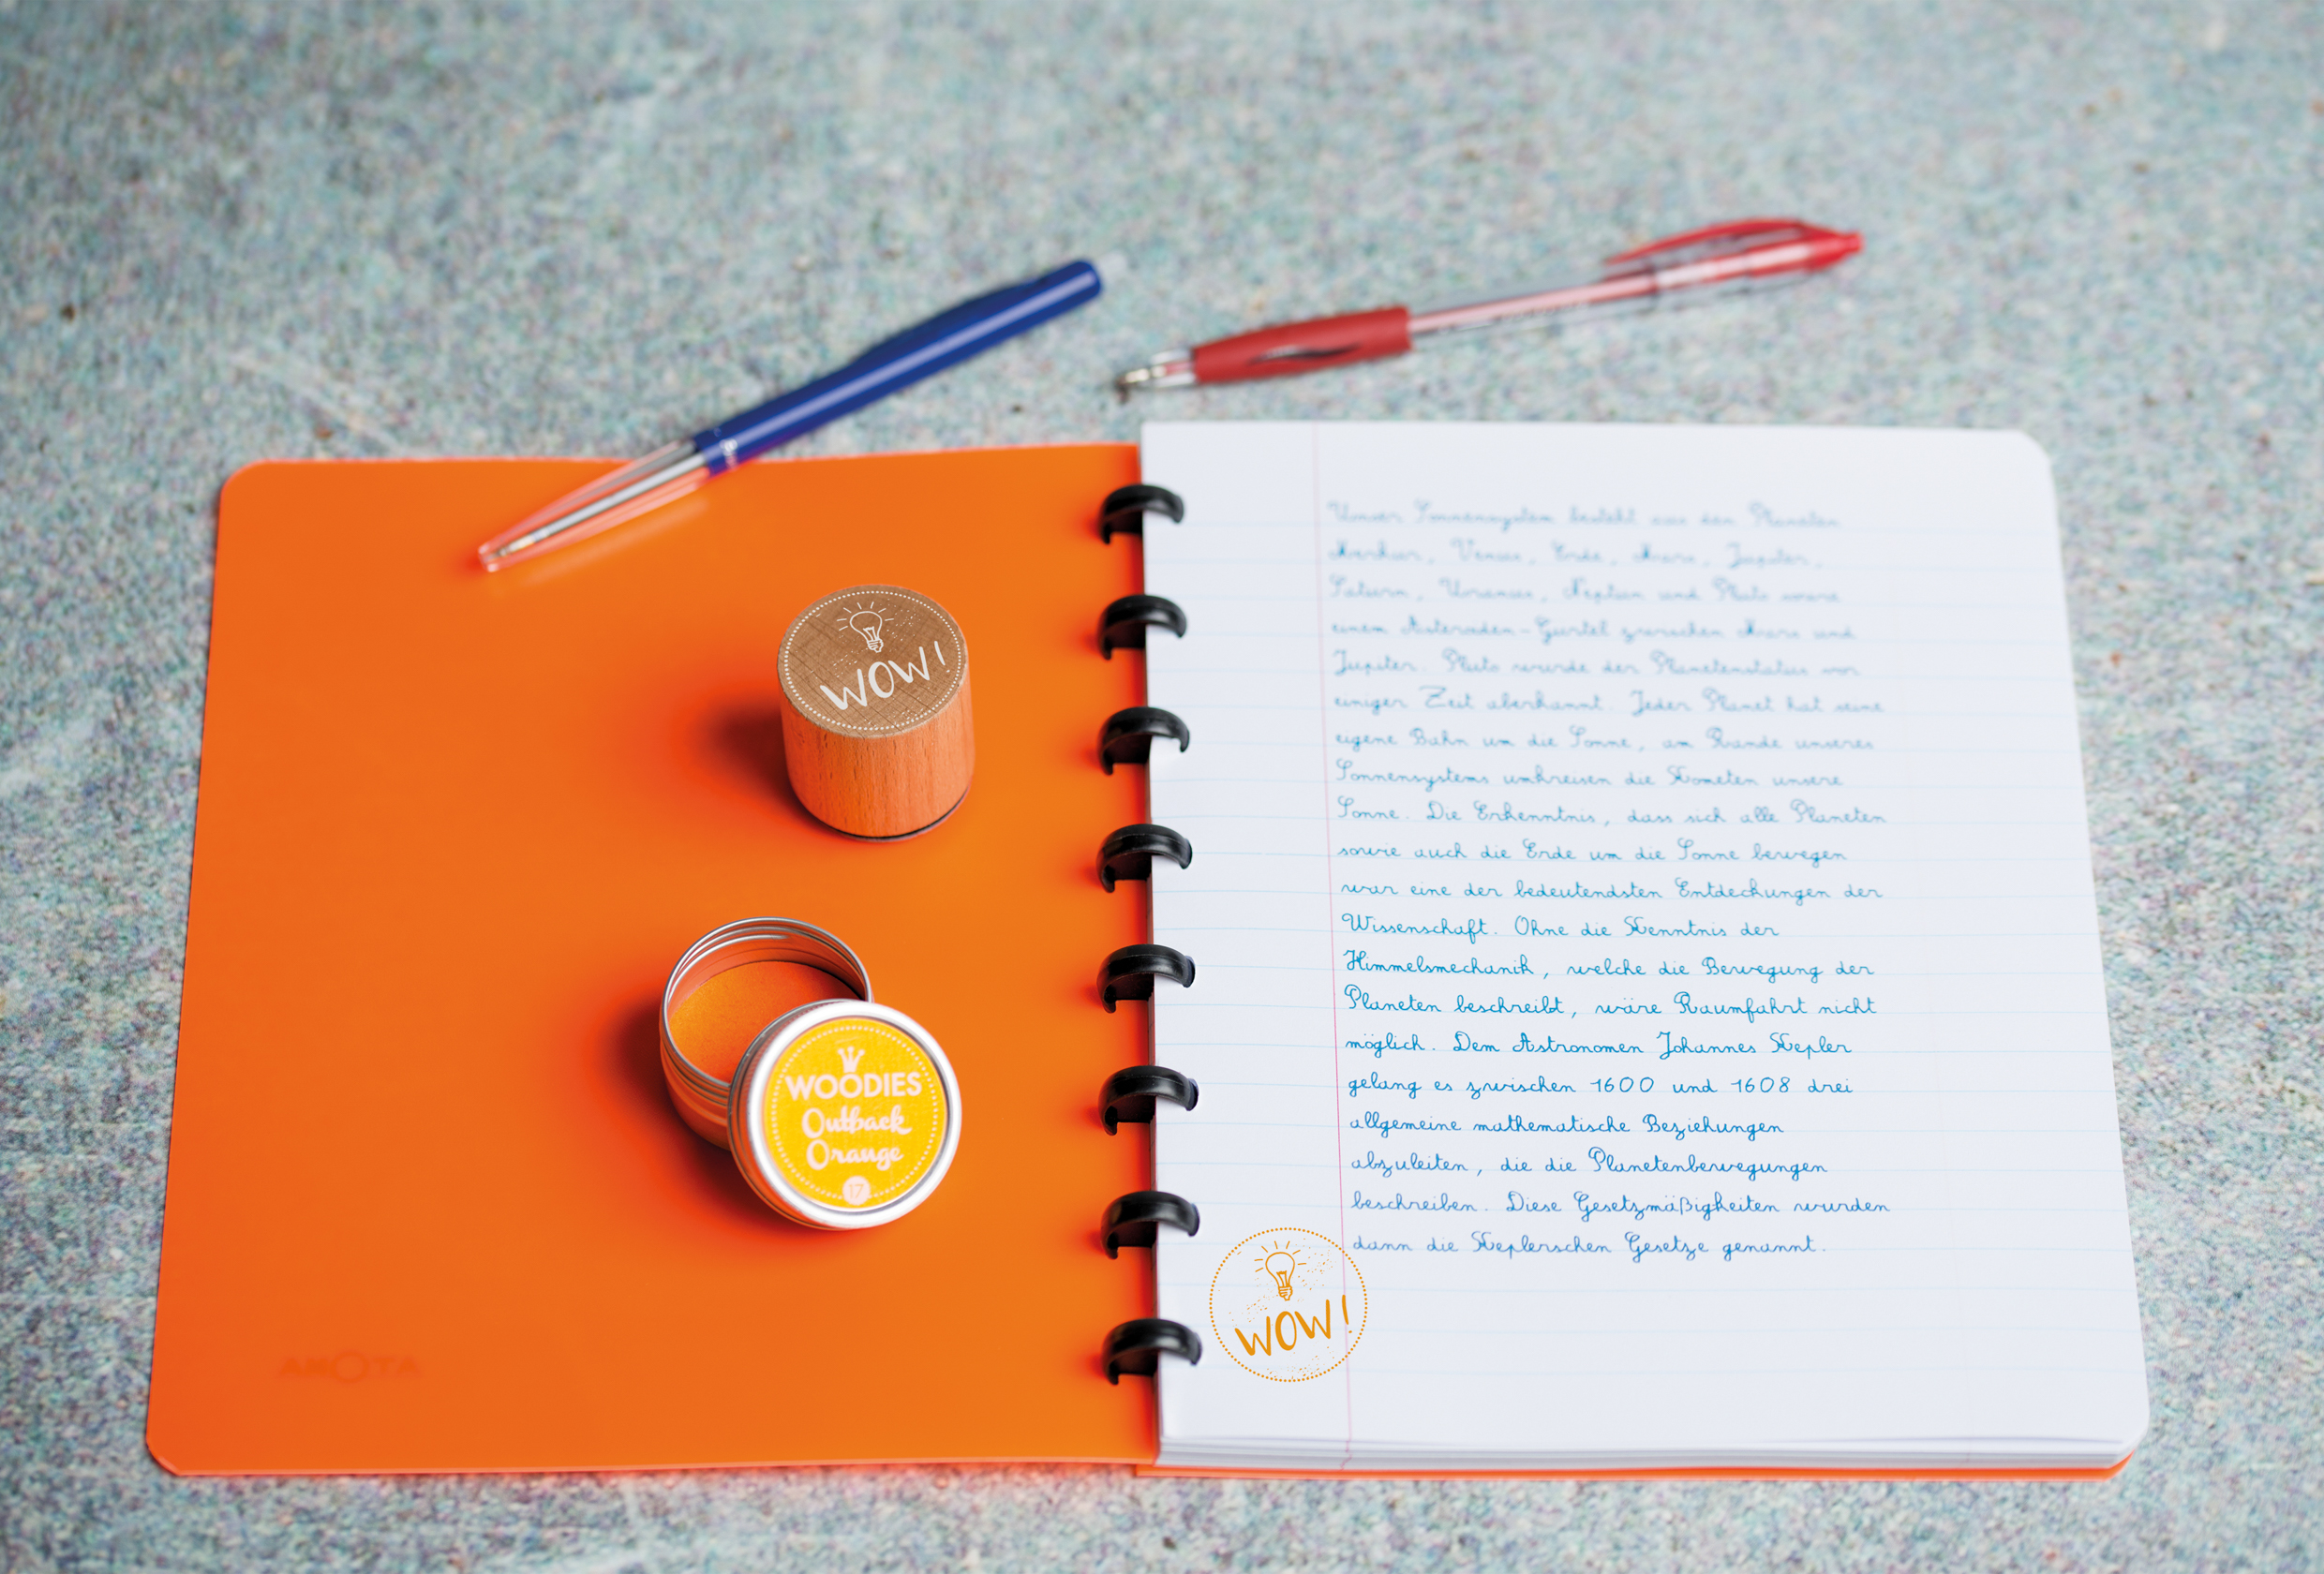 WOW!
WOODIES
Outback
Orange
17
Unser Sonnensystem besteht aus den Planeten
Merkur, Venus, Erde, Mars, Jupiter,
Saturn, Uranus, Neptun und Pluto sowie
einem Asteroiden-Gürtel zwischen Mars und
Jupiter. Pluto wurde der Planetenstatus vor
einiger Zeit aberkannt. Jeder Planet hat seine
eigene Bahn um die Sonne, am Rande unseres
Sonnensystems umkreisen die Kometen unsere
Sonne. Die Erkenntnis, dass sich alle Planeten
sowie auch die Erde um die Sonne bewegen
war eine der bedeutendsten Entdeckungen der
Wissenschaft. Ohne die Kenntnis der
Himmelsmechanik, welche die Bewegung der
Planeten beschreibt, wäre Raumfahrt nicht
möglich. Dem Astronomen Johannes Kepler
gelang es zwischen 1600 und 1608 drei
allgemeine mathematische Beziehungen
abzuleiten, die die Planetenbewegungen
beschreiben. Diese Gesetzmäßigkeiten wurden
dann die Keplerschen Gesetze genannt.
WOW!